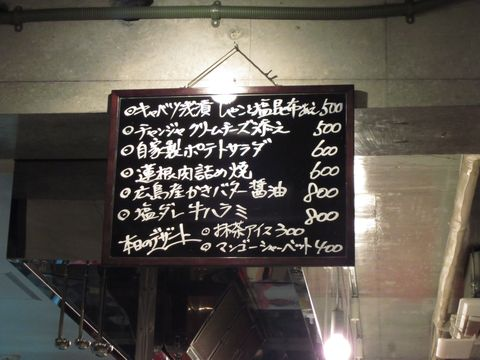 ◎キャベツ浅漬 じゃこと塩昆布あえ 500
◎チャンジャ クリームチーズ添え 500
◎自家製ポテトサラダ 600
◎蓮根肉詰め焼 600
◎広島産かきバター醤油 800
◎塩ダレ牛ハラミ 800
本日のデザート ◎抹茶アイス 300
◎マンゴーシャーベット 400